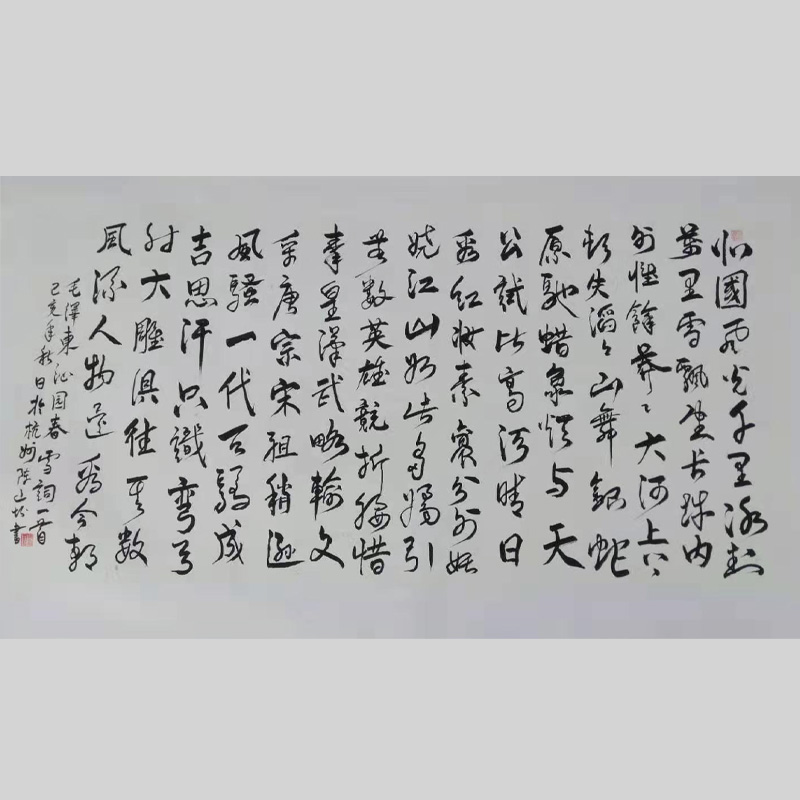 北國風光千里冰封
萬里雪飄望长城内
外惟餘莽々大河上下
頓失滔々山舞銀蛇
原馳蜡象欲与天
公試比高須晴日
看红妝素裹分外妖
娆江山如此多嬌引
無数英雄競折腰惜
秦皇漢武略輸文
采唐宗宋祖稍遜
風騷一代天驕成
吉思汗只識彎弓
射大雕俱往矣数
風流人物還看今朝
毛澤東沁园春雪詞一首
己亥年秋日於杭州書